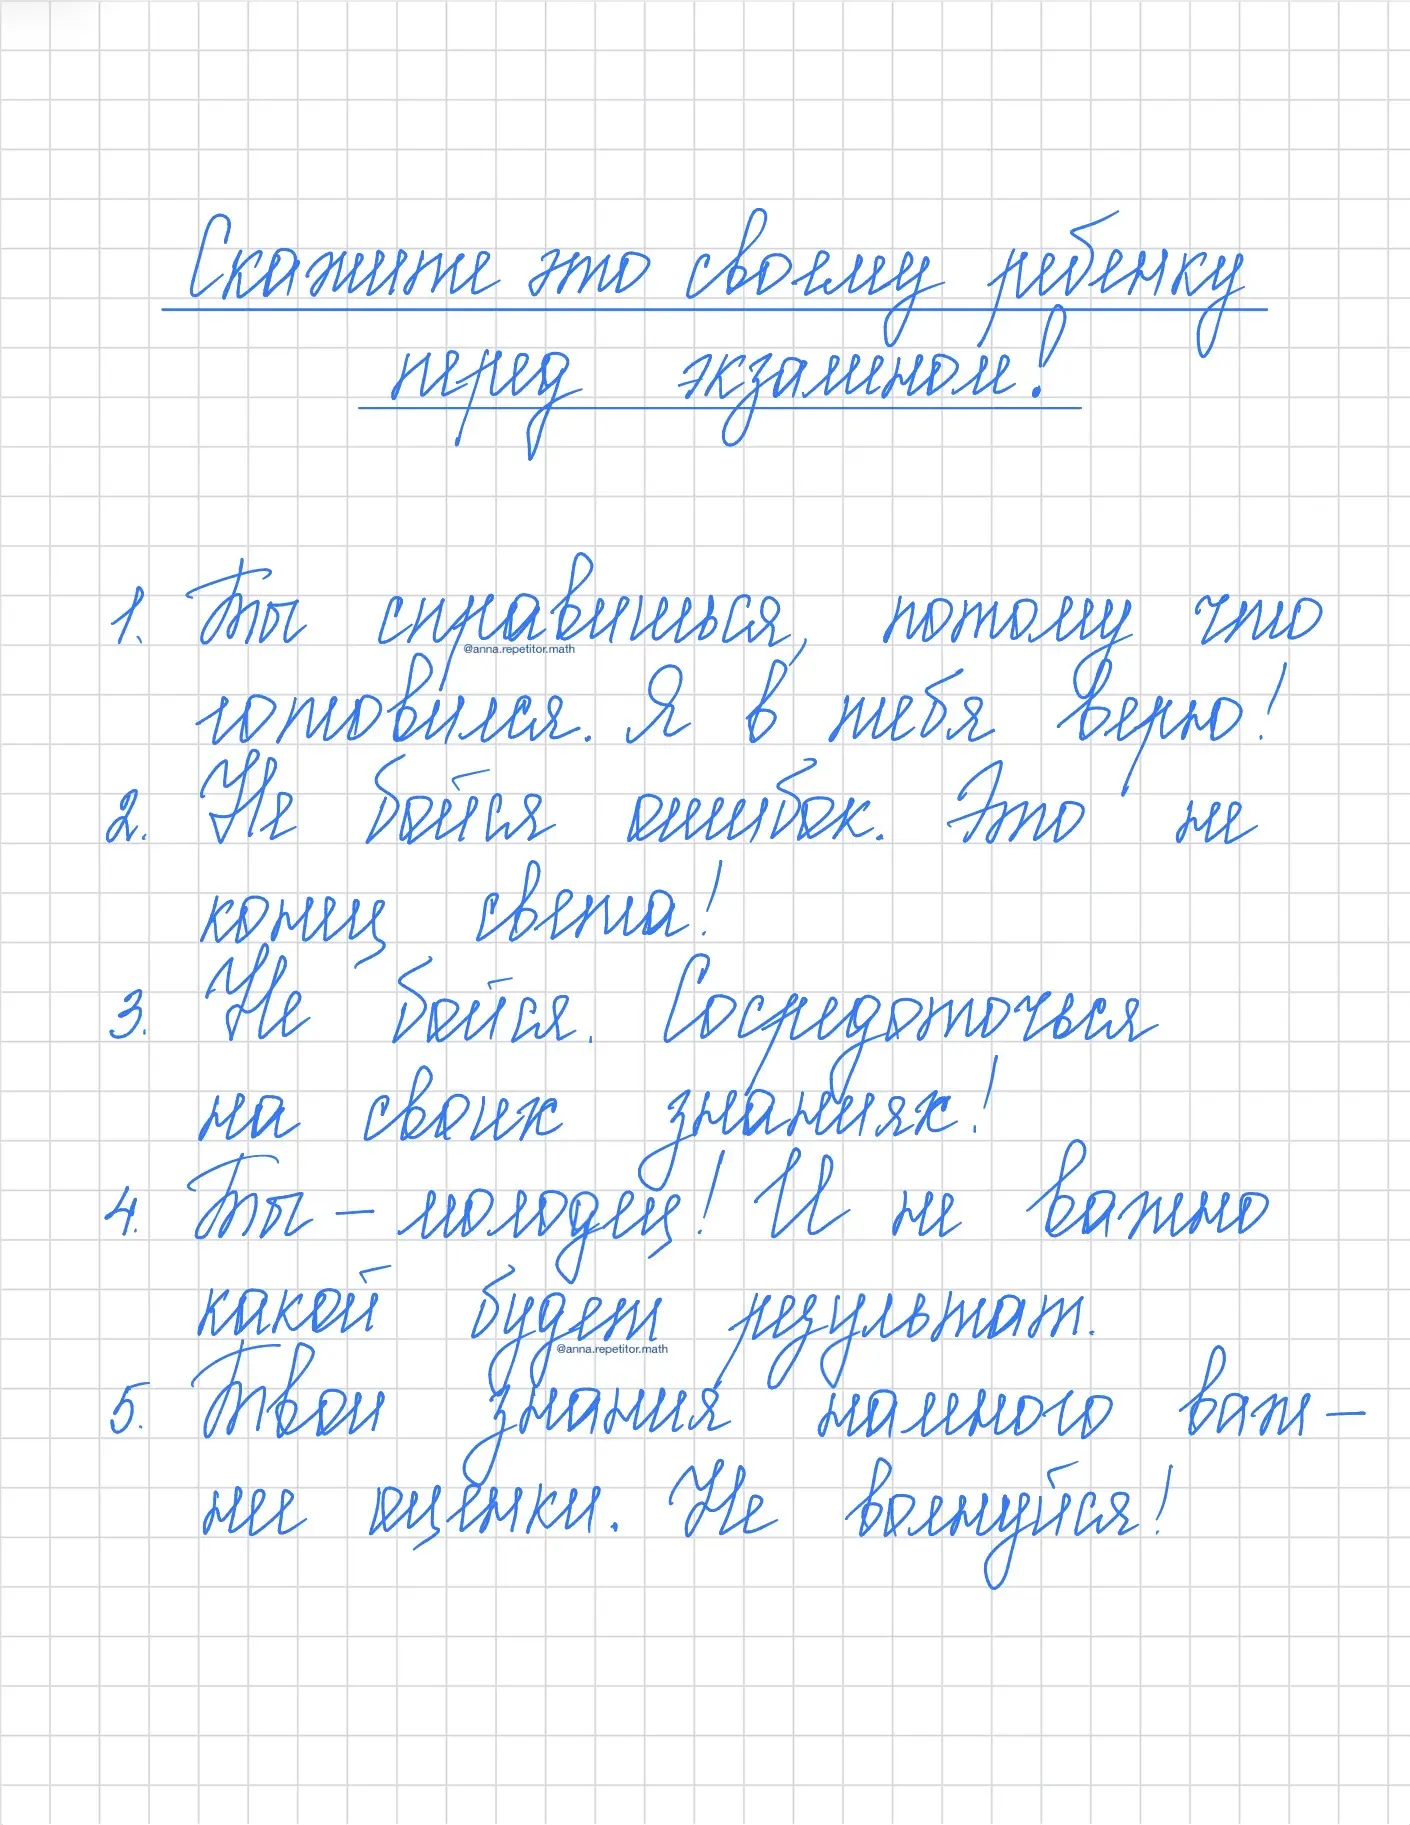 Скажите это своему ребенку
перед экзаменом!
1. Ты справишься, потому что
@anna.repetitor.math
готовился. Я в тебя верю!
2. Не бойся ошибок. Это не
конец света!
3. Не бойся. Сосредоточься
на своих знаниях!
4. Ты – молодец! И не важно
какой будет результат.
@anna.repetitor.math
5. Твои знания намноговаж–
нее оценки. Не волнуйся!